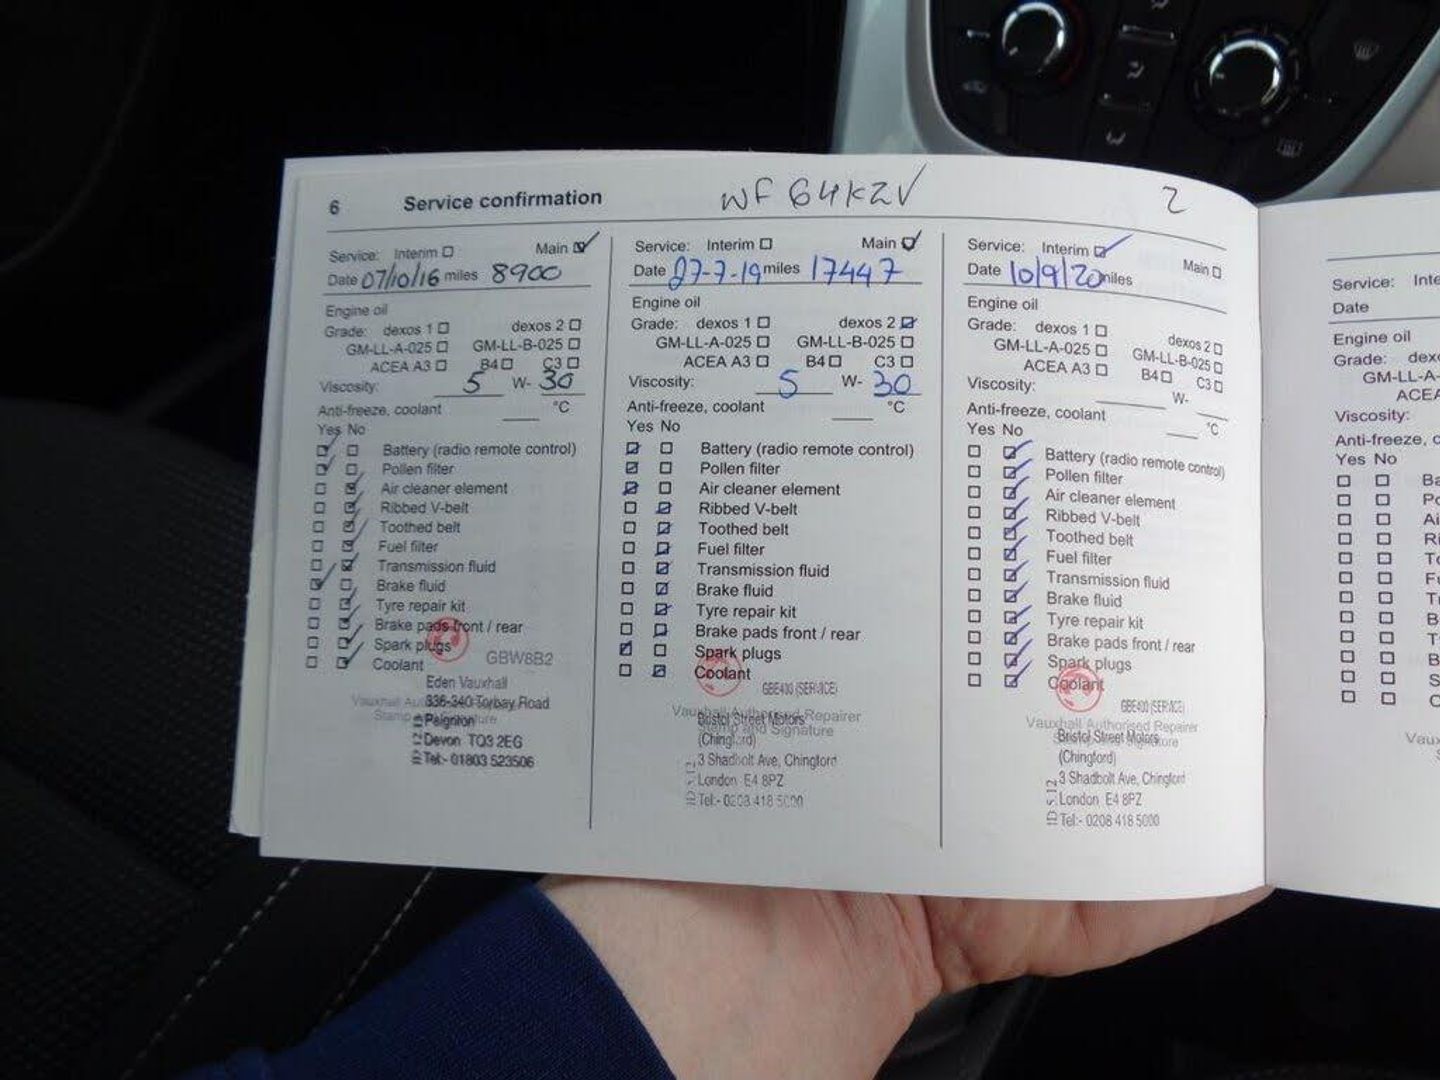 6 Service confirmation WF64KZV 2
Service: Interim Main
Date 07/10/16 miles 8900
Engine oil
Grade: dexos 1 dexos 2
GM-LL-A-025 GM-LL-B-025
ACEA A3 B4 C3
Viscosity: 5 W- 30
Anti-freeze, coolant °C
Yes No
Battery (radio remote control)
Pollen filter
Air cleaner element
Ribbed V-belt
Toothed belt
Fuel filter
Transmission fluid
Brake fluid
Tyre repair kit
Brake pads front / rear
Spark plugs
Coolant
GBW8B2
Eden Vauxhall
336-340 Torbay Road
Paignton
Devon TQ3 2EG
Tel:- 01803 523506
Service: Interim Main
Date 27-7-19 miles 17447
Engine oil
Grade: dexos 1 dexos 2
GM-LL-A-025 GM-LL-B-025
ACEA A3 B4 C3
Viscosity: 5 W- 30
Anti-freeze, coolant °C
Yes No
Battery (radio remote control)
Pollen filter
Air cleaner element
Ribbed V-belt
Toothed belt
Fuel filter
Transmission fluid
Brake fluid
Tyre repair kit
Brake pads front / rear
Spark plugs
Coolant
GBE400 (SERVICE)
Vauxhall Authorised Repairer
Stamp and Signature
Bristol Street Motors
(Chingford)
3 Shadbolt Ave, Chingford
London E4 8PZ
Tel:- 0208 418 5000
Service: Interim Main
Date 10/9/20 miles
Engine oil
Grade: dexos 1 dexos 2
GM-LL-A-025 GM-LL-B-025
ACEA A3 B4 C3
Viscosity: W-
Anti-freeze, coolant °C
Yes No
Battery (radio remote control)
Pollen filter
Air cleaner element
Ribbed V-belt
Toothed belt
Fuel filter
Transmission fluid
Brake fluid
Tyre repair kit
Brake pads front / rear
Spark plugs
Coolant
GBE400 (SERVICE)
Vauxhall Authorised Repairer
Bristol Street Motors
(Chingford)
3 Shadbolt Ave, Chingford
London E4 8PZ
Tel:- 0208 418 5000
Service: Inte
Date
Engine oil
Grade: dexo
GM-LL-A-
ACEA
Viscosity:
Anti-freeze, c
Yes No
Ba
Po
Ai
Ri
To
Fu
Tr
B
T
B
S
C
Vaux